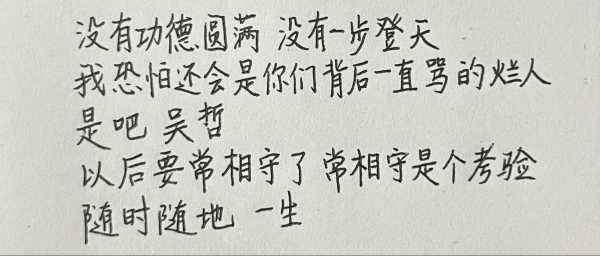 没有功德圆满 没有一步登天
我恐怕还会是你们背后一直骂的烂人
是吧 吴哲
以后要常相守了 常相守是个考验
随时随地 一生